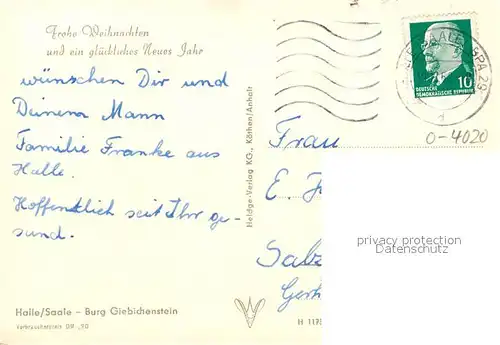 Frohe Weihnachten
und ein glückliches Neues Jahr
wünschen Dir und
Deinem Mann
Familie Franke aus
Halle.
Hoffentlich seit Ihr ge-
sund.
Halle/Saale – Burg Giebichenstein
Verbraucherpreis DM -,20
Heldge-Verlag KG., Köthen/Anhalt
10
DEUTSCHE
DEMOKRATISCHE REPUBLIK
O-4020
Frau
E.
privacy protection
Datenschutz
H 117